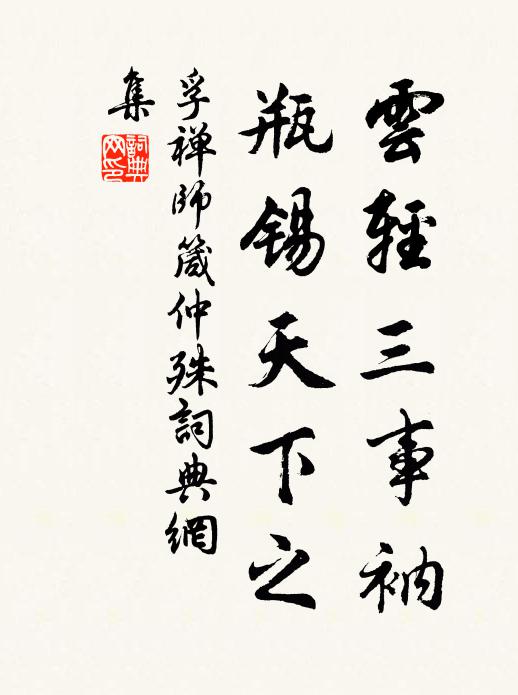 雲輕三事衲
瓶錫天下之
孚禪師箴仲殊詞典網
集
詞典
网印